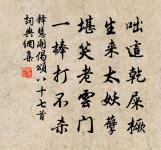 咄這乾屎橛
生來太妖孽
堪笑老雲門
一棒打不杀
釋慧開偈頌八十七首
詞典網集